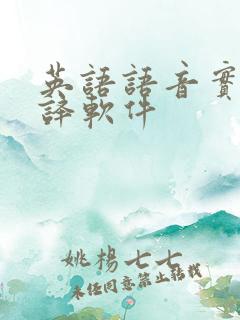 英語語音實
譯軟件
姚楊七七
未经同意禁止转载